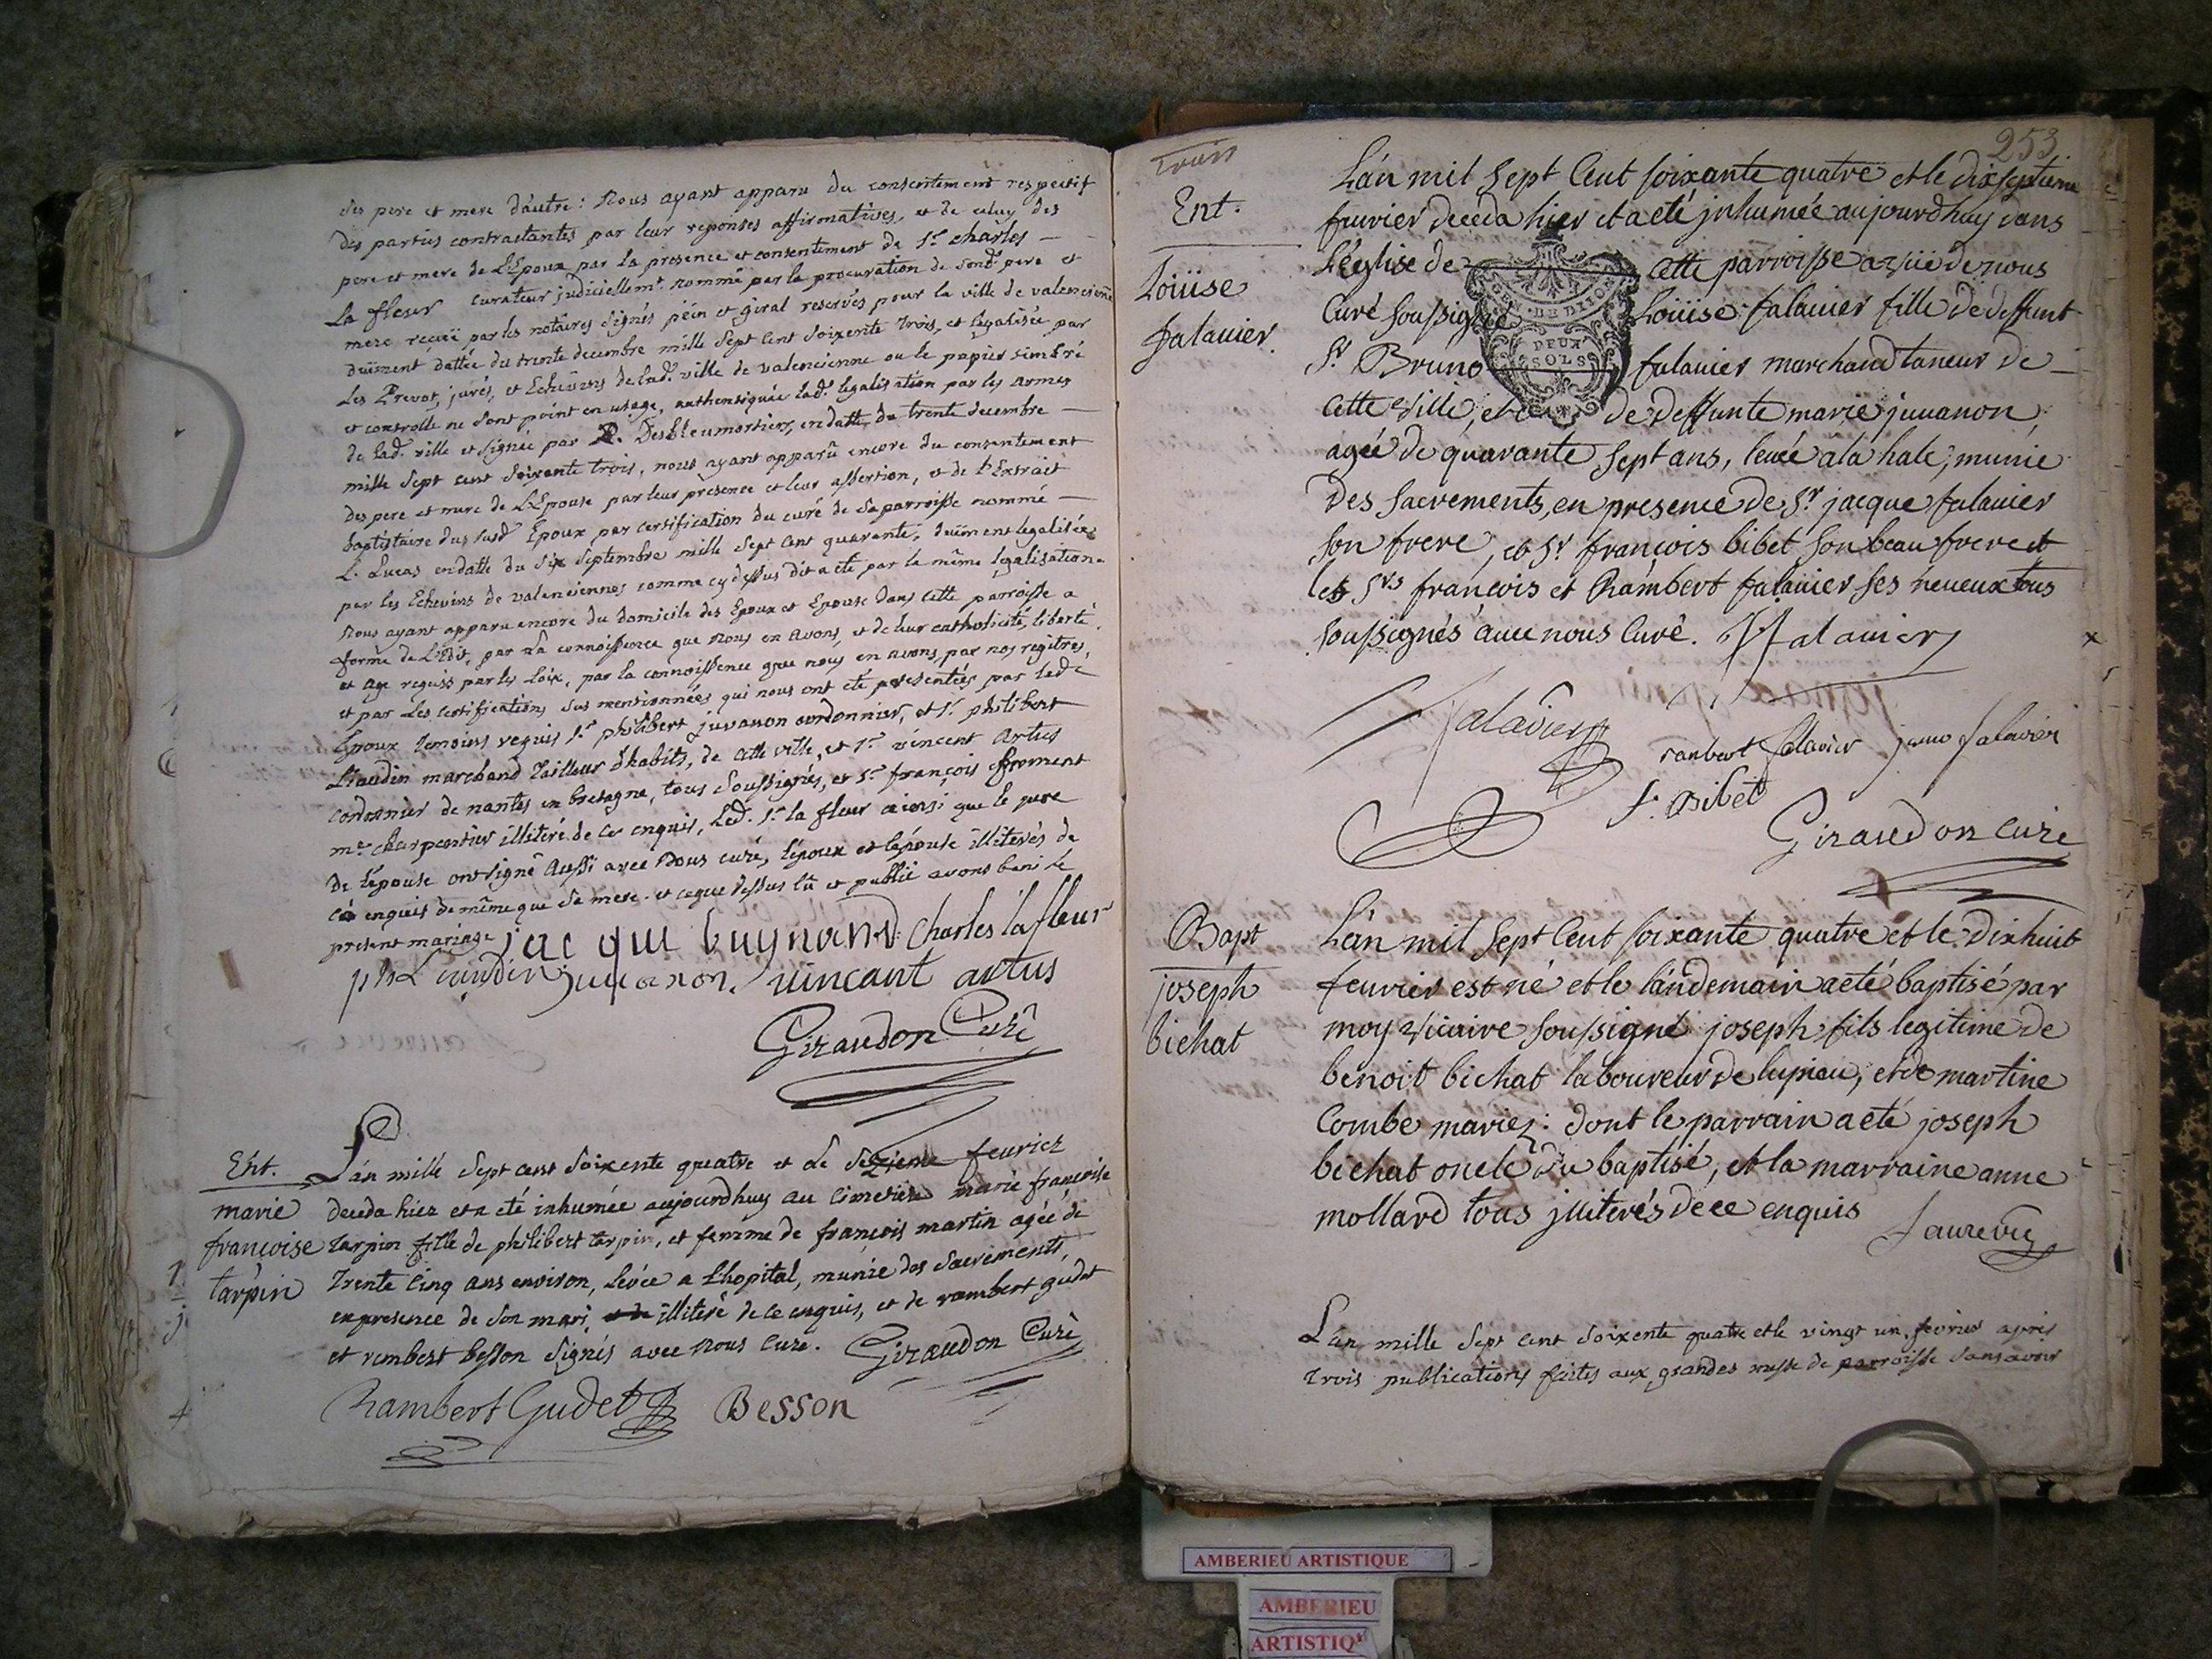 des pere et mere d'autre: Nous ayant apparu du consentement respectif
des parties contractantes par leur reponses affirmatives, et de celuy des
pere et mere de L'Epoux par la presence et consentement de Sr. charles
La fleur curateur judiciellemt. nommé par la procuration de sond. pere et
mere reçeüe par les notaires signés péin et giral reservés pour la ville de valencienne
düement dattée du trente decembre mille Sept Cent Soixente trois, et legalisée par
Les Prevot, jurés, et Echevins de lad. ville de valencienne ou le papier timbré
et controlle ne Sont point en usage, authentiquée lad. legalisation par les armes
de lad. ville et signée par Desbleumortiers, en datte du trente decembre
mille Sept cent Soixente trois, nous ayant apparû encore du consentement
des pere et mere de L'Epouse par leur présence et leur assertion, et de l'Extrait
baptistaire dud. susd. Epoux par certification du curé de Saparroisse nommé
L. Lucas en datte du Six Septembre mille Sept Cent quarante, düement legalisée
par les Echevins de valenciennes comme cy dessus dit a eté par la même legalisation.
Nous ayant apparu encore du domicile des Epoux et Epouse dans Cette parroisse a
forme de L'Edit, par la connoissence que nous en avons, et de leur catholicité, liberté,
et age requis par les Loix, par la connoissence que nous en avons, par nos regitres,
et par Les certifications sus mentionnées qui nous ont eté presentées par led.
Epoux temoins requis Sr philibert juvanon cordonnier, et Sr. philibert
Liaudin marchand tailleur d'habits, de cette ville, et Sr. vincent artus
cordonnier de nantes en bretagne, tous Soussignés, et Sr françois froment
me. charpentier illiteré de ce enquis, Led. Sr. la fleur ainsi que le pere
de l'epouse ont signé aussi avec Nous curé, l'époux et l'épouse illiterés de
ce enquis de même que sa mere. et ce que dessus lû et publié avons beni le
present mariage jac que bugnand Charles lafleur
ph Liaudin juvanon. vincant artus
Giraudon Curé
Ent.
marie
françoise
tarpin
L'an mille Sept cent Soixente quatre et le Sezieme feurier
deceda hier et a eté inhumée aujourdhuy au Cimetiere marie françoise
tarpin fille de philibert tarpin, et femme de françois martin agée de
trente Cinq ans environ, levée a L'hopital, munie des Sacrements,
en presence de Son mari, et de illiteré de ce enquis, et de rambert gudet
et rembert besson Signés avec nous Curé. Giraudon Curé
Rambert Gudet Besson
trois
253
Ent.
Loüise
falavier.
L'an mil Sept Cent Soixante quatre et le dixseptieme
feuvrier deceda hier et a eté jnhumée aujourdhuy dans
L'église de cette parroisse assüe de nous
Curé Soussigné Loüise falavier fille de deffunt
GEN. DE DIJON
DEUX
SOLS
Sr Bruno falavier marchand taneur de
cette ville, et de deffunte marie juvanon,
agée de quarante sept ans, levée a la hale, munie
des Sacrements, en presence de Sr jacque falavier
son frere, et Sr françois bibet son beau frere et
les Srs françois et Rambert falavier ses neveux tous
soussignés avec nous Curé. falavier
falavier
ranbert falavier
falavier
f. Bibet
Giraudon Curé
Bapt
joseph
bichat
L'an mil Sept Cent Soixante quatre et le dixhuit
feuvrier est né et le l'andemain a eté baptisé par
moy vicaire Soussigné joseph fils legitime de
benoit bichat laboureur de luisieu, et de martine
Combe mariez: dont le parrain a eté joseph
bichat oncle du baptisé, et la marraine anne
mollard tous jlliterés de ce enquis
faure vic
L'an mille Sept cent Soixente quatre et le vingt un fevrier apres
trois publications faites aux grandes messe de parroisse sans avoir
AMBERIEU ARTISTIQUE
AMBERIEU
ARTISTIQ